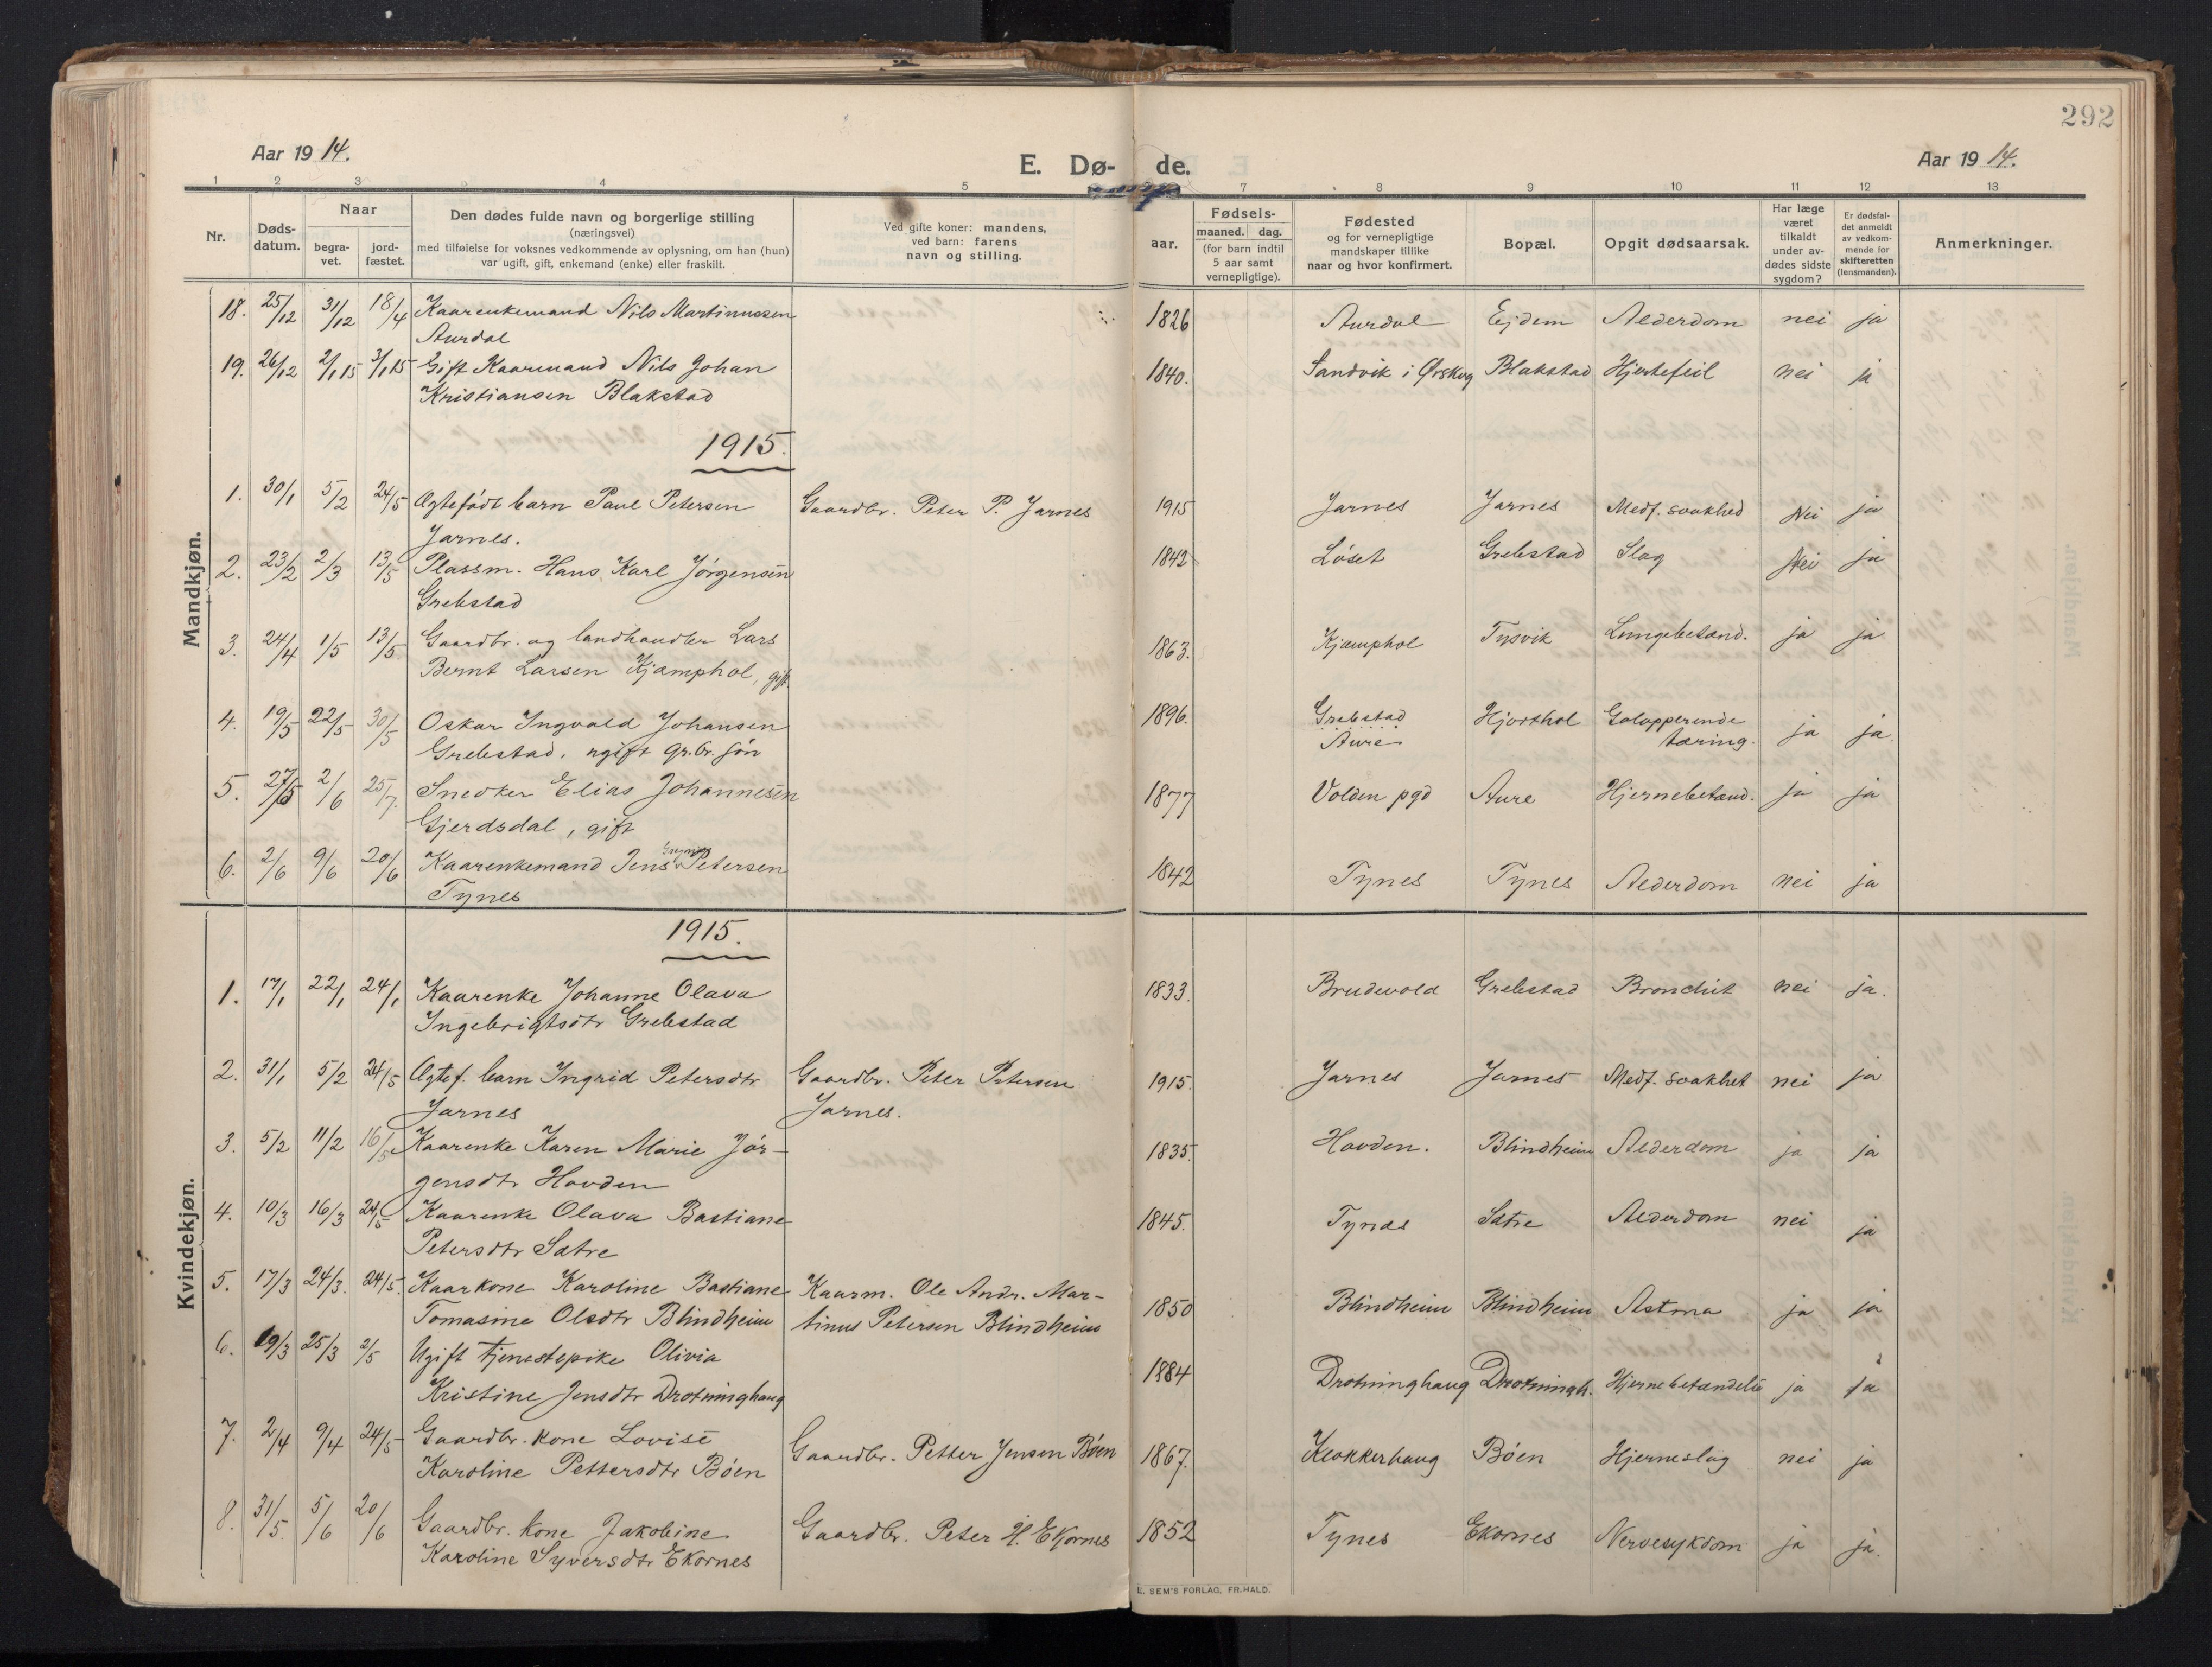 292
Aar 19 14.
E. Dø- de.
Aar 19 14.
1 2 3 4 5 7 8 9 10 11 12 13
Nr.
Døds-
datum.
Naar
begra-
vet.
jord-
fæstet.
Den dødes fulde navn og borgerlige stilling
(næringsvei)
med tilføielse for voksnes vedkommende av oplysning, om han (hun)
var ugift, gift, enkemand (enke) eller fraskilt.
Ved gifte koner: mandens,
ved barn: farens
navn og stilling.
aar.
Fødsels-
maaned. dag.
(for barn indtil
5 aar samt
vernepligtige).
Fødested
og for vernepligtige
mandskaper tillike
naar og hvor konfirmert.
Bopæl.
Opgit dødsaarsak.
Har læge
været
tilkaldt
under av-
dødes sidste
sygdom?
Er dødsfal-
det anmeldt
av vedkom-
mende for
skifteretten
(lensmanden).
Anmerkninger.
Mandkjøn.
18. 25/12 31/12 18/4 Kaarenkemand Nils Martinussen 1826 Aurdal Ejdem Alderdom nei ja
Aurdal
19. 26/12 2/1 15 3/1 15 Gift Kaarmand Nils Johan 1840. Sandvik i Ørskog Blakstad Hjertefeil nei ja
Kristiansen Blakstad
1915.
1. 30/1 5/2 24/5 Ægtefødt barn Paul Petersen Gaardbr. Peter P. Jarnes 1915 Jarnes Jarnes Medf. svakhed Nei ja
Jarnes.
2. 23/2 2/3 13/5 Plassm. Hans Karl Jørgensen 1842 Løset Grebstad Slag Nei ja
Grebstad
3. 24/4 1/5 13/5 Gaardbr. og landhandler Lars 1863. Kjæmphol Tysvik Lungebetænd. ja ja
Bernt Larsen Kjæmphol, gift.
4. 19/5 22/5 30/5 Oskar Ingvald Johansen 1896. Grebstad Hjorthol Galopperende ja ja.
Grebstad, ugift gr.br. søn Aure tæring.
5. 27/5 2/6 25/7. Snedker Elias Johannesen 1877 Volden pgd Aure Hjernebetænd. ja ja
Gjerdsdal, gift
6. 2/6 9/6 20/6 Kaarenkemand Jens Petersen 1842 Tynes Tynes Alderdom nei ja
Tynes
Kvindekjøn.
1915.
1. 17/1 22/1 24/1 Kaarenke Johanne Olava 1833. Brudevold Grebstad Bronchit nei ja.
Ingebrigtsdtr Grebstad
2. 31/1 5/2 24/5 Ægtef. barn Ingrid Petersdtr Gaardbr. Peter Petersen 1915. Jarnes Jarnes Medf. svakhet nei ja
Jarnes Jarnes.
3. 5/2 11/2 16/5 Kaarenke Karen Marie Jør- 1835. Hovden. Blindheim Alderdom ja ja
gensdtr Hovden
4. 10/3 16/3 24/5 Kaarenke Olava Bastiane 1845. Tynes Sætre Alderdom nei ja
Petersdtr Sætre
5. 17/3 24/3. 24/5. Kaarkone Karoline Bastiane Kaarm. Ole Andr. Mar- 1850 Blindheim Blindheim Astma ja ja
Tomasine Olsdtr Blindheim tinus Petersen Blindheim
6. 19/3 25/3 2/5 Ugift tjenestepike Olivia 1884 Drotninghaug Drotningh. Hjernebetændelse ja ja
Kristine Jensdtr Drotninghaug
7. 2/4 9/4 24/5 Gaardbr. kone Lovise Gaardbr. Petter Jensen Bøen 1867. Klokkerhaug Bøen Hjerneslag nei ja
Karoline Pettersdtr Bøen
8. 31/5. 5/6 20/6 Gaardbr. kone Jakobine Gaardbr. Peter H. Ekornes 1852 Tynes Ekornes Nervesykdom ja ja.
Karoline Syversdtr Ekornes
E. SEM'S FORLAG, FR.HALD.